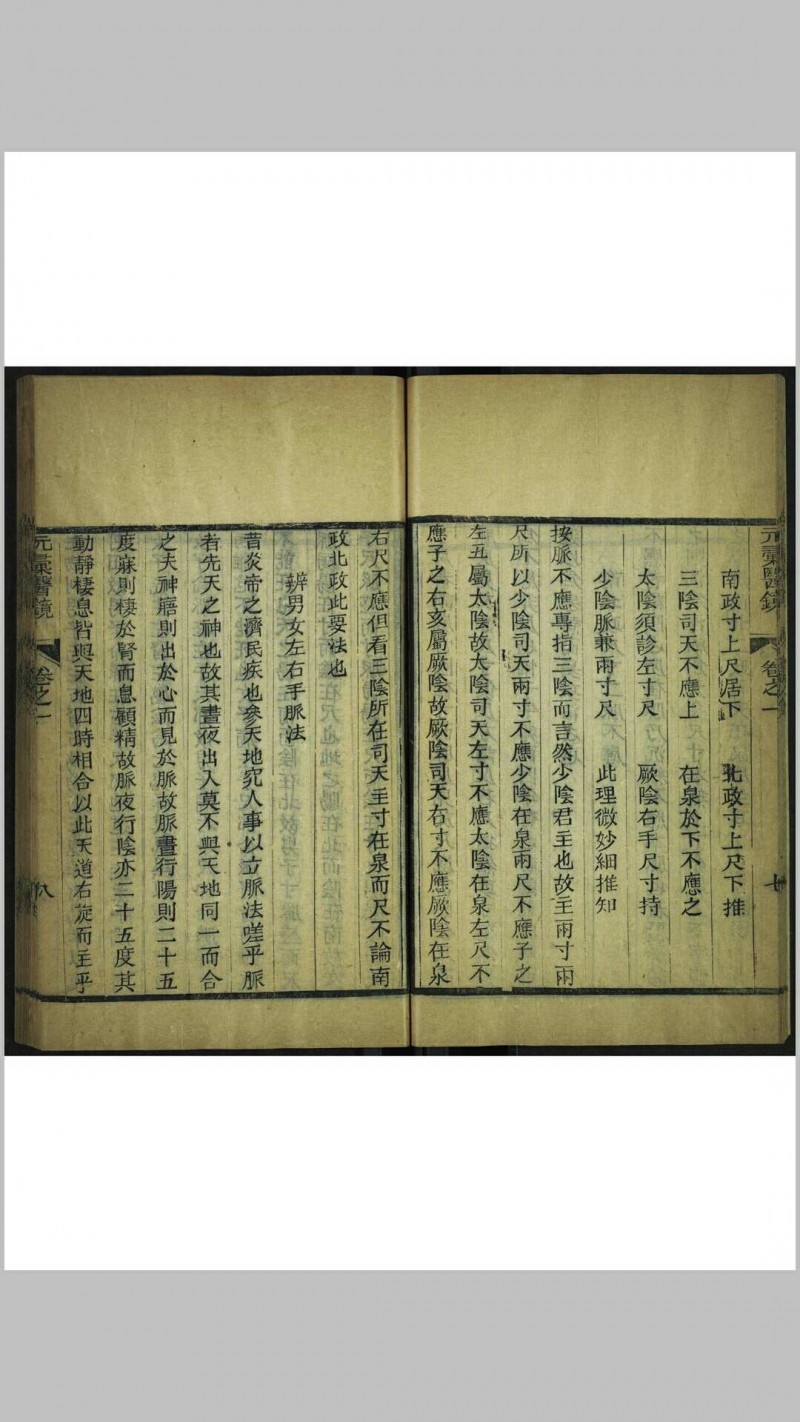 元彙醫鏡
卷之一
七
南政寸上尺居下　北政寸上尺下推
三陰司天不應上　在泉於下不應之
太陰須診左寸尺　厥陰右手尺寸持
少陰脈兼兩寸尺　此理微妙細推知
按脈不應專指三陰而言然少陰君主也故主兩寸兩
尺所以少陰司天兩寸不應少陰在泉兩尺不應子之
左丑屬太陰故太陰司天左寸不應太陰在泉左尺不
應子之右亥屬厥陰故厥陰司天右寸不應厥陰在泉
右尺不應但看三陰所在司天主寸在泉而尺不論南
政北政此要法也
辨男女左右手脈法
昔炎帝之濟民疾也參天地究人事以立脈法嗟乎脈
者先天之神也故其晝夜出入莫不與天地同一而合
之夫神寤則出於心而見於脈故脈晝行陽則二十五
度寐則棲於腎而息顧精故脈夜行陰亦二十五度其
動靜棲息皆與天地四時相合以此天道右旋而主乎
元彙醫鏡
卷之一
八